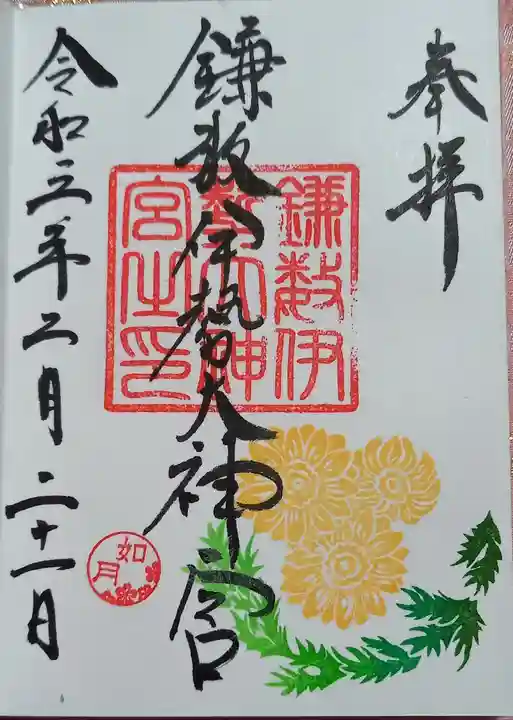 奉拝
鎌数伊勢大神宮
鎌数伊
勢大神
宮之印
令和三年二月二十一日
如月